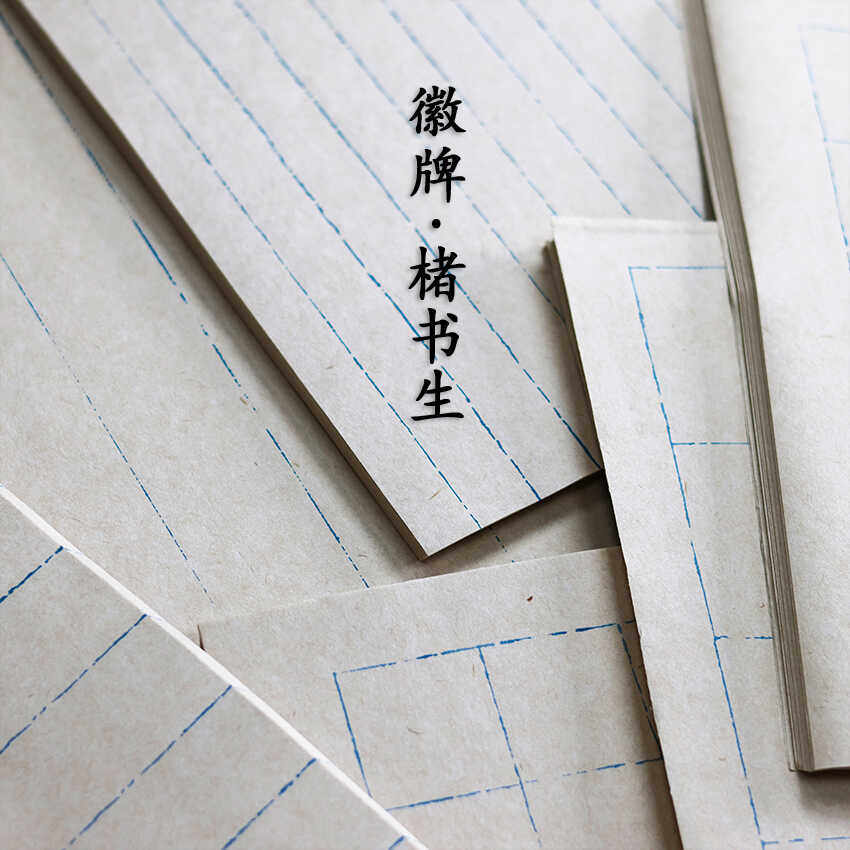 徽牌·楮书生